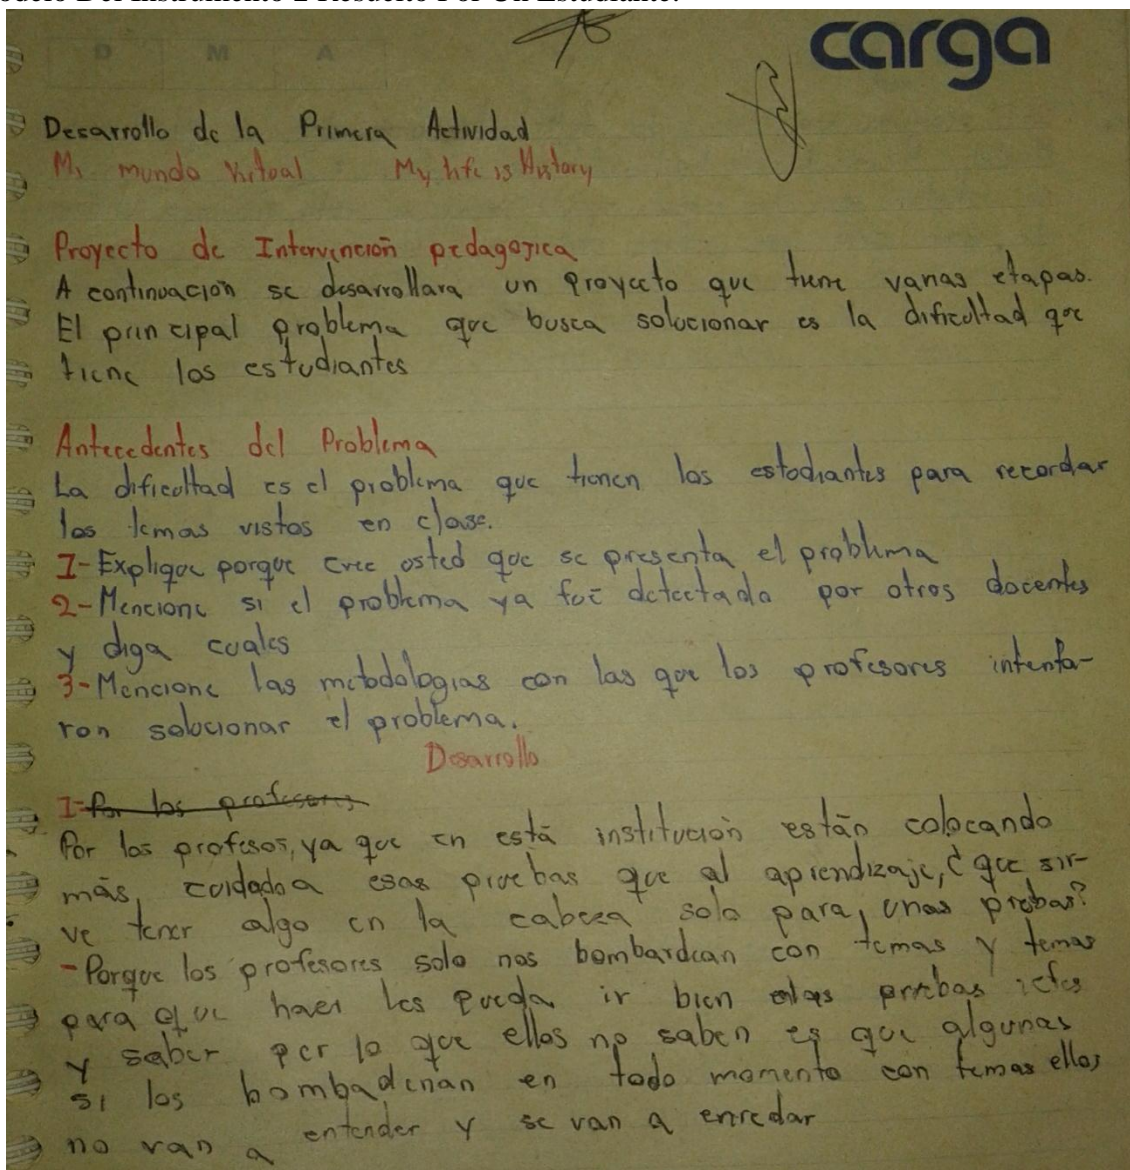 Modelo Del Instrumento 2 Resuelto Por Un Estudiante.
carga
D M A
Desarrollo de la Primera Actividad
Mi mundo Virtual My life is History
Proyecto de Intervención pedagogica
A continuación se desarrollara un proyecto que tiene varias etapas.
El principal problema que busca solucionar es la dificultad que
tiene los estudiantes
Antecedentes del Problema
La dificultad es el problema que tienen los estudiantes para recordar
los temas vistos en clase.
1-Explique porque cree usted que se presenta el problema
2-Mencione si el problema ya fue detectado por otros docentes
y diga cuales
3-Mencione las metodologias con las que los profesores intenta-
ron solucionar el problema.
Desarrollo
1-Por los profesores
Por los profesos, ya que en está institución están colocando
más cuidado a esas pruebas que al aprendizaje, ¿que sir-
ve tener algo en la cabeza solo para, unas probas?
-Porque los profesores solo nos bombardean con temas y temas
para que haer les pueda ir bien pruebas icfes
y saber per lo que ellos no saben es que algunas
si los bombadenan en todo momento con temas ellos
no van a entender y se van a enredar